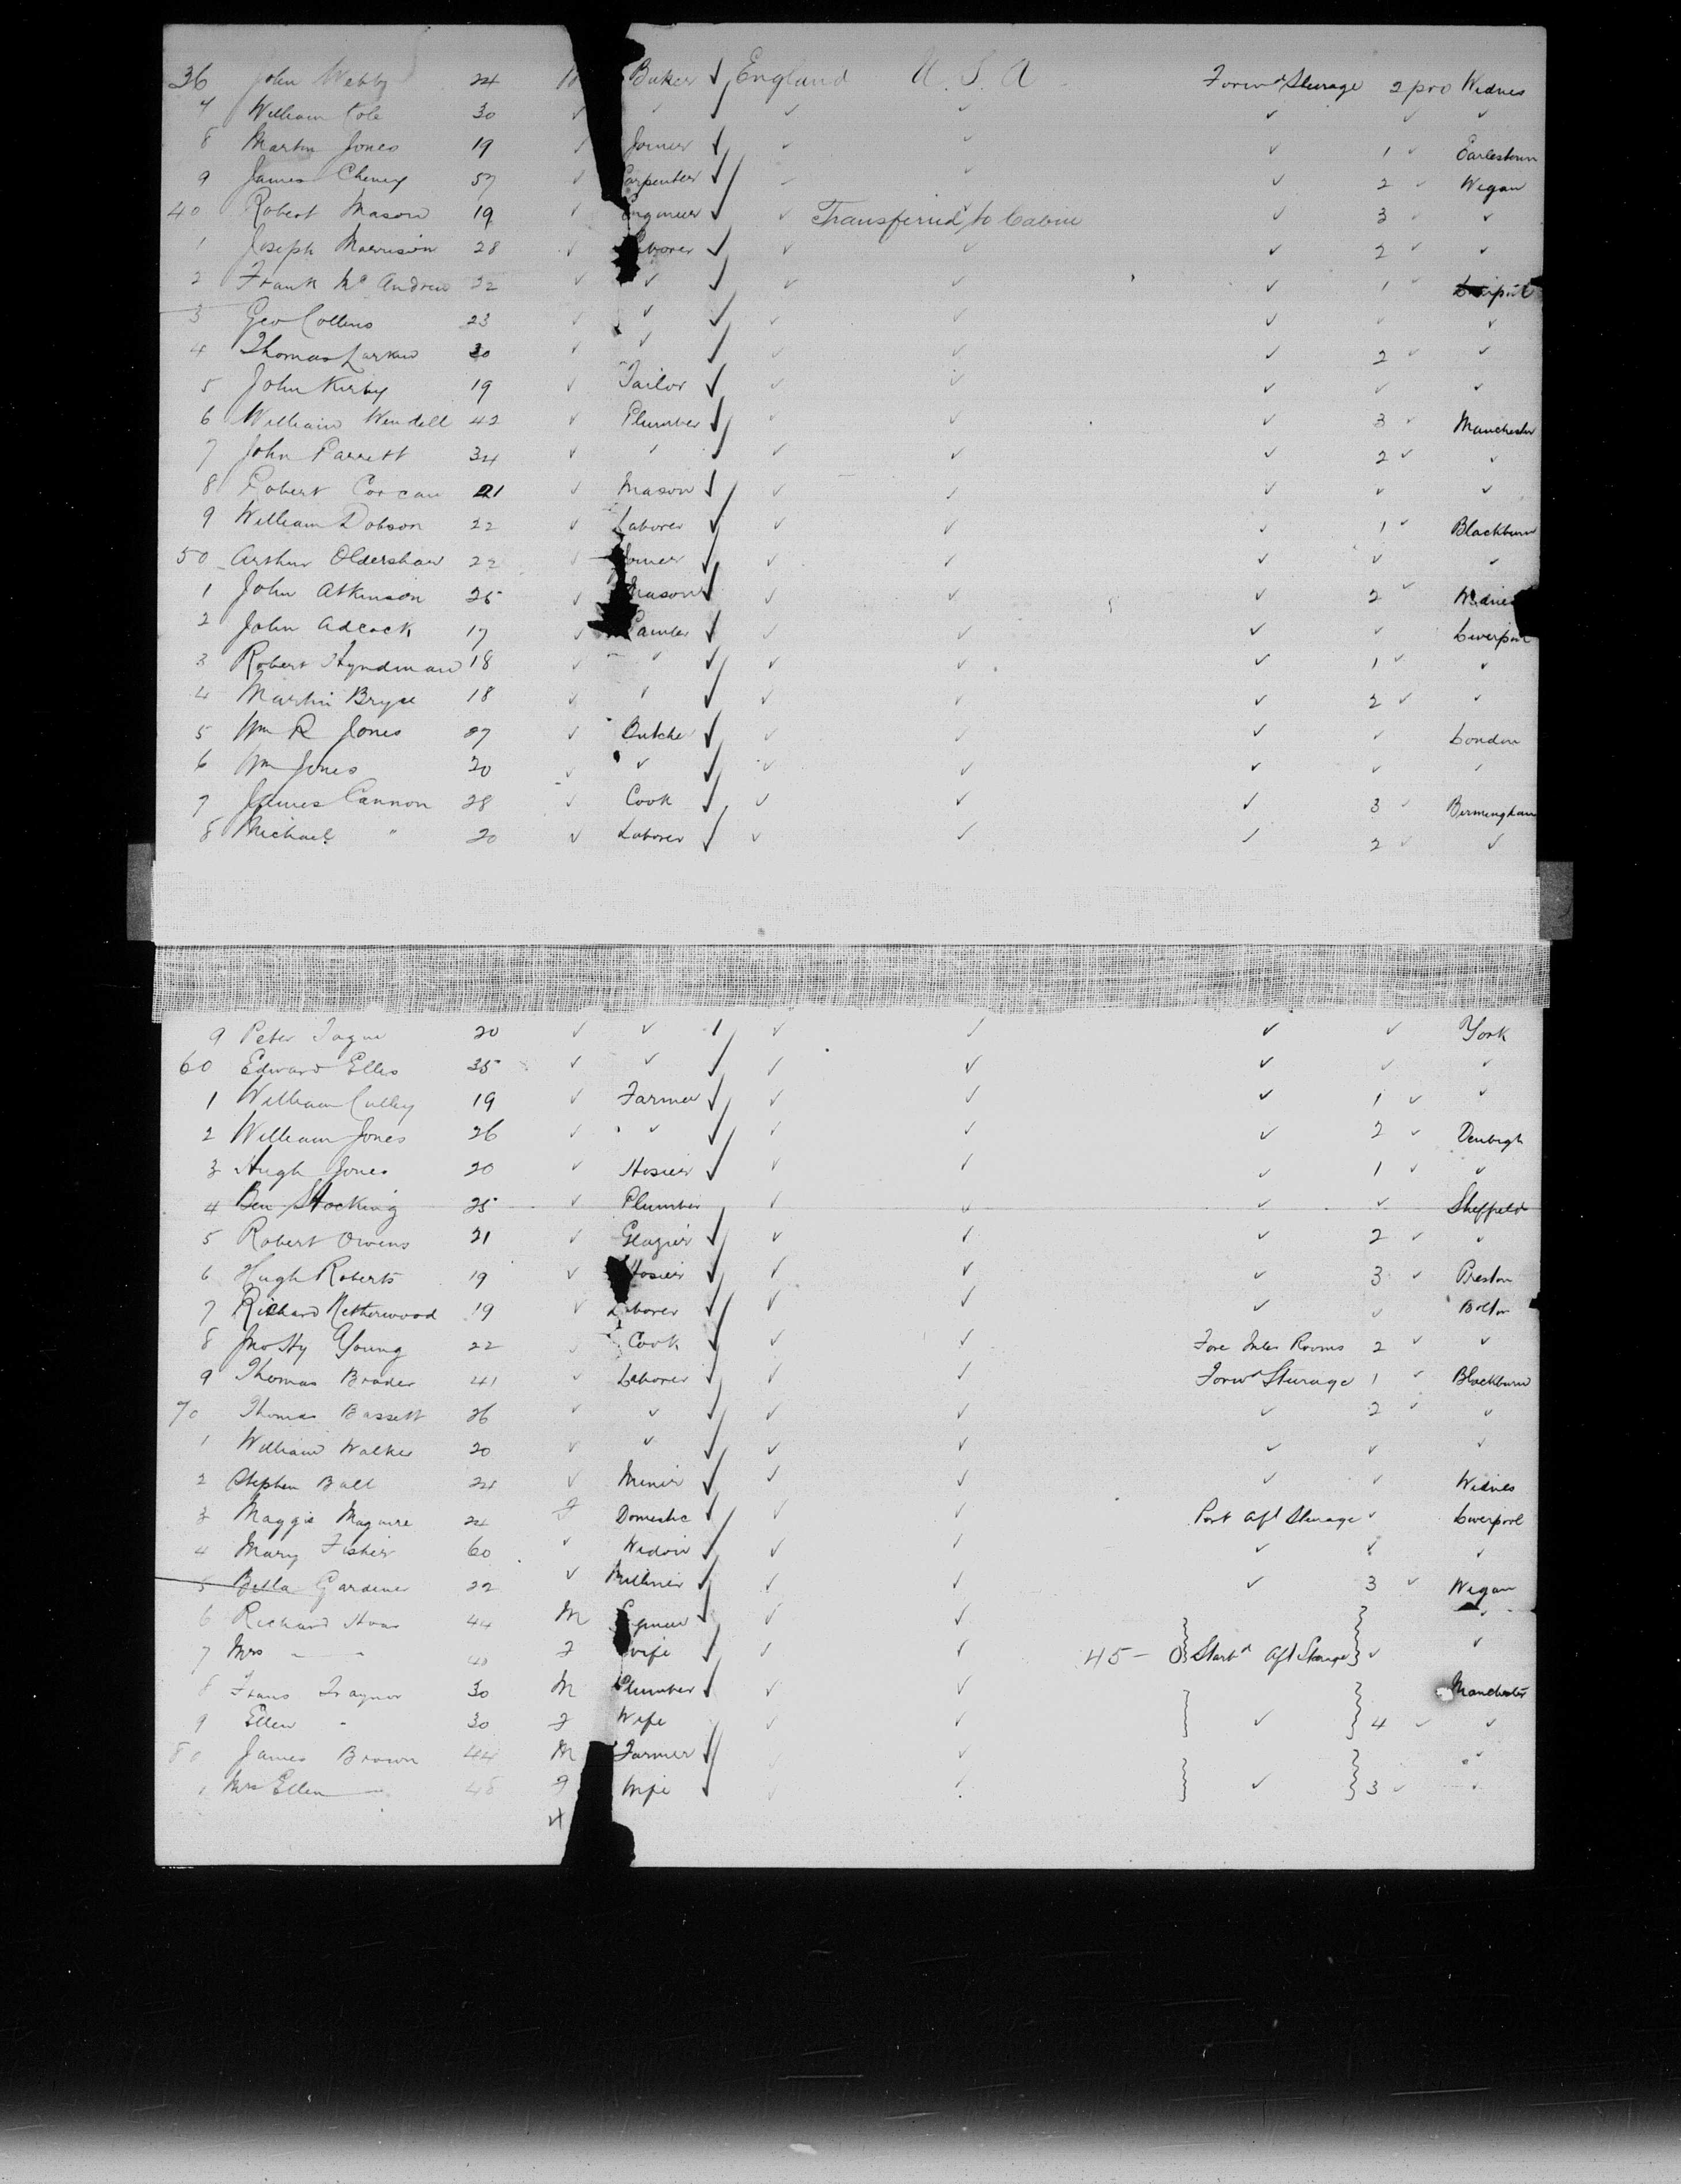 36 John Webby 24 Baker ✓ England U. S. A Forwd Steerage 2 pro Widnes
7 William Cole 30 ✓ ✓ ✓ ✓ ✓ ✓ ✓ ✓
8 Martin Jones 19 ✓ Joiner ✓ ✓ ✓ ✓ 1 ✓ Earlestown
9 James Cheney 57 ✓ Carpenter ✓ ✓ ✓ ✓ 2 ✓ Wigan
40 Robert Mason 19 ✓ Engineer ✓ ✓ Transferred to Cabin ✓ 3 ✓ ✓
1 Joseph Morrison 28 ✓ Laborer ✓ ✓ ✓ ✓ 2 ✓ ✓
2 Frank Mc Andrew 32 ✓ ✓ ✓ ✓ ✓ ✓ 1 ✓ Liverpool
3 Geo Collins 23 ✓ ✓ ✓ ✓ ✓ ✓ ✓ ✓
4 Thomas Larkin 30 ✓ ✓ ✓ ✓ ✓ ✓ 2 ✓ ✓
5 John Kirby 19 ✓ Tailor ✓ ✓ ✓ ✓ ✓ ✓
6 William Wendell 42 ✓ Plumber ✓ ✓ ✓ ✓ 3 ✓ Manchester
7 John Parrett 34 ✓ ✓ ✓ ✓ ✓ ✓ 2 ✓ ✓
8 Robert Corcan 21 ✓ Mason ✓ ✓ ✓ ✓ ✓ ✓
9 William Dobson 22 ✓ Laborer ✓ ✓ ✓ ✓ 1 ✓ Blackburn
50 Arthur Oldershaw 22 ✓ Joiner ✓ ✓ ✓ ✓ ✓ ✓
1 John Atkinson 25 ✓ Mason ✓ ✓ ✓ ✓ 2 ✓ Widnes
2 John Adcock 17 ✓ Painter ✓ ✓ ✓ ✓ ✓ Liverpool
3 Robert Hyndman 18 ✓ ✓ ✓ ✓ ✓ ✓ 1 ✓ ✓
4 Martin Bryce 18 ✓ ✓ ✓ ✓ ✓ ✓ 2 ✓ ✓
5 Wm R Jones 27 ✓ Butcher ✓ ✓ ✓ ✓ ✓ London
6 Wm Jones 20 ✓ ✓ ✓ ✓ ✓ ✓ ✓ ✓
7 James Cannon 28 ✓ Cook ✓ ✓ ✓ ✓ 3 ✓ Birmingham
8 Michael " 20 ✓ Laborer ✓ ✓ ✓ ✓ 2 ✓ ✓
9 Peter Tague 20 ✓ ✓ ✓ ✓ ✓ ✓ ✓ York
60 Edward Ellis 35 ✓ ✓ ✓ ✓ ✓ ✓ ✓ ✓
1 William Culley 19 ✓ Farmer ✓ ✓ ✓ ✓ 1 ✓ ✓
2 William Jones 26 ✓ ✓ ✓ ✓ ✓ ✓ 2 ✓ Denbigh
3 Hugh Jones 20 ✓ Hosier ✓ ✓ ✓ ✓ 1 ✓ ✓
4 Ben Stocking 25 ✓ Plumber ✓ ✓ ✓ ✓ Sheffield
5 Robert Owens 21 ✓ Glazier ✓ ✓ ✓ ✓ 2 ✓ ✓
6 Hugh Roberts 19 ✓ Hosier ✓ ✓ ✓ ✓ 3 ✓ Preston
7 Richard Netherwood 19 ✓ Laborer ✓ ✓ ✓ ✓ ✓ Bolton
8 Jno Hy Young 22 ✓ Cook ✓ ✓ ✓ Fore Inter Rooms 2 ✓ ✓
9 Thomas Brader 41 ✓ Laborer ✓ ✓ ✓ Forwd Steerage 1 ✓ Blackburn
70 Thomas Bassett 26 ✓ ✓ ✓ ✓ ✓ ✓ 2 ✓ ✓
1 William Walker 20 ✓ ✓ ✓ ✓ ✓ ✓ ✓ ✓
2 Stephen Ball 24 ✓ Miner ✓ ✓ ✓ ✓ ✓ Widnes
3 Maggie Maguire 24 F Domestic ✓ ✓ ✓ Port Aft Steerage ✓ Liverpool
4 Mary Fisher 60 ✓ Widow ✓ ✓ ✓ ✓ ✓ ✓
5 Bella Gardener 22 ✓ Milliner ✓ ✓ ✓ ✓ 3 ✓ Wigan
6 Richard 44 M Engineer ✓ ✓ ✓ ✓
7 Mrs - - 40 F Wife ✓ ✓ ✓ 45- Starbd Aft Steerage ✓ ✓
8 Frans Traynor 30 M Plumber ✓ ✓ ✓ Manchester
9 Ellen - 30 F Wife ✓ ✓ ✓ 4 ✓ ✓
80 James Brown 44 M Farmer ✓ ✓ ✓ ✓
1 Mrs Ellen — 48 F Wife ✓ ✓ ✓ ✓ 3 ✓ ✓